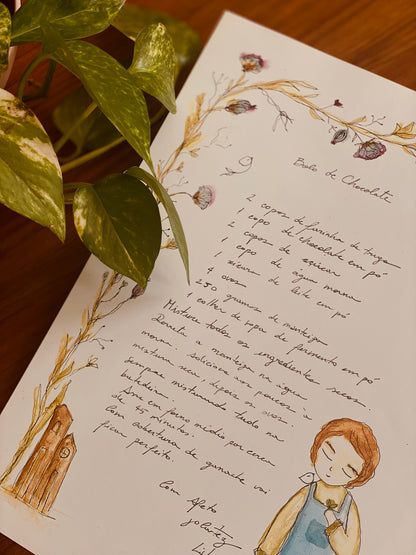 Bolo de Chocolate
2 copos de farinha de trigo
1 copo de chocolate em pó
2 copos de açúcar
1 copo de água morna
1 xícara de leite em pó
4 ovos
250 gramas de manteiga
1 colher de sopa de fermento em pó
Misture todos os ingredientes secos.
Derreta a manteiga na água
morna. Adicione aos poucos à
mistura seca, depois os ovos.
Sempre misturando tudo na
batedeira.
Asse em forno médio por cerca
de 45 minutos.
Com cobertura de ganache vai
ficar perfeito.
Com Afeto